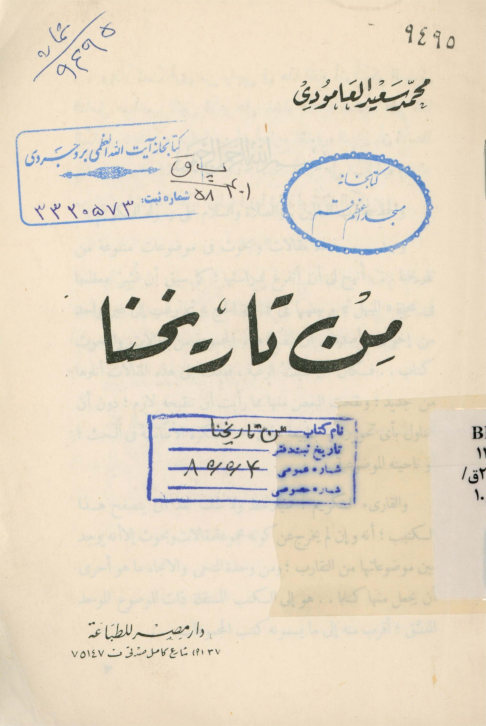 ٩٤٩٥
٩٤٩٥
محمد سعيد العامودي
كتابخانه آيت الله العظمى بروجردى
شماره ثبت:
٣٣٢٠٥٧٣
كتابخانه
مسجد اعظم قم
مِن تاريخنا
نام كتاب من تاريخنا
تاريخ ثبت دفتر
شماره عمومى
شماره خصوصى
دار مصر للطباعة
٣٧ شارع كامل صدقى ت ٧٥١٤٧